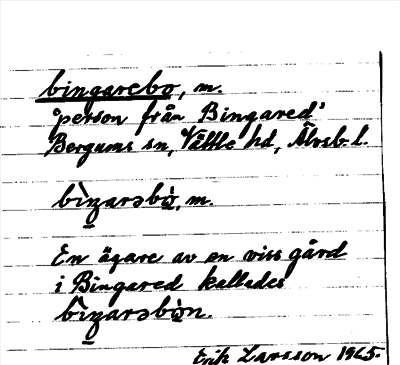 bingarebo, m.
'person från Bingared'
Bergums sn, Vättle hd, Älvsb. l.
bìŋarəbò̤, m.
En ägare av en viss gård
i Bingared kallades
bìŋarəbò̤n.
Erik Larsson 1965.